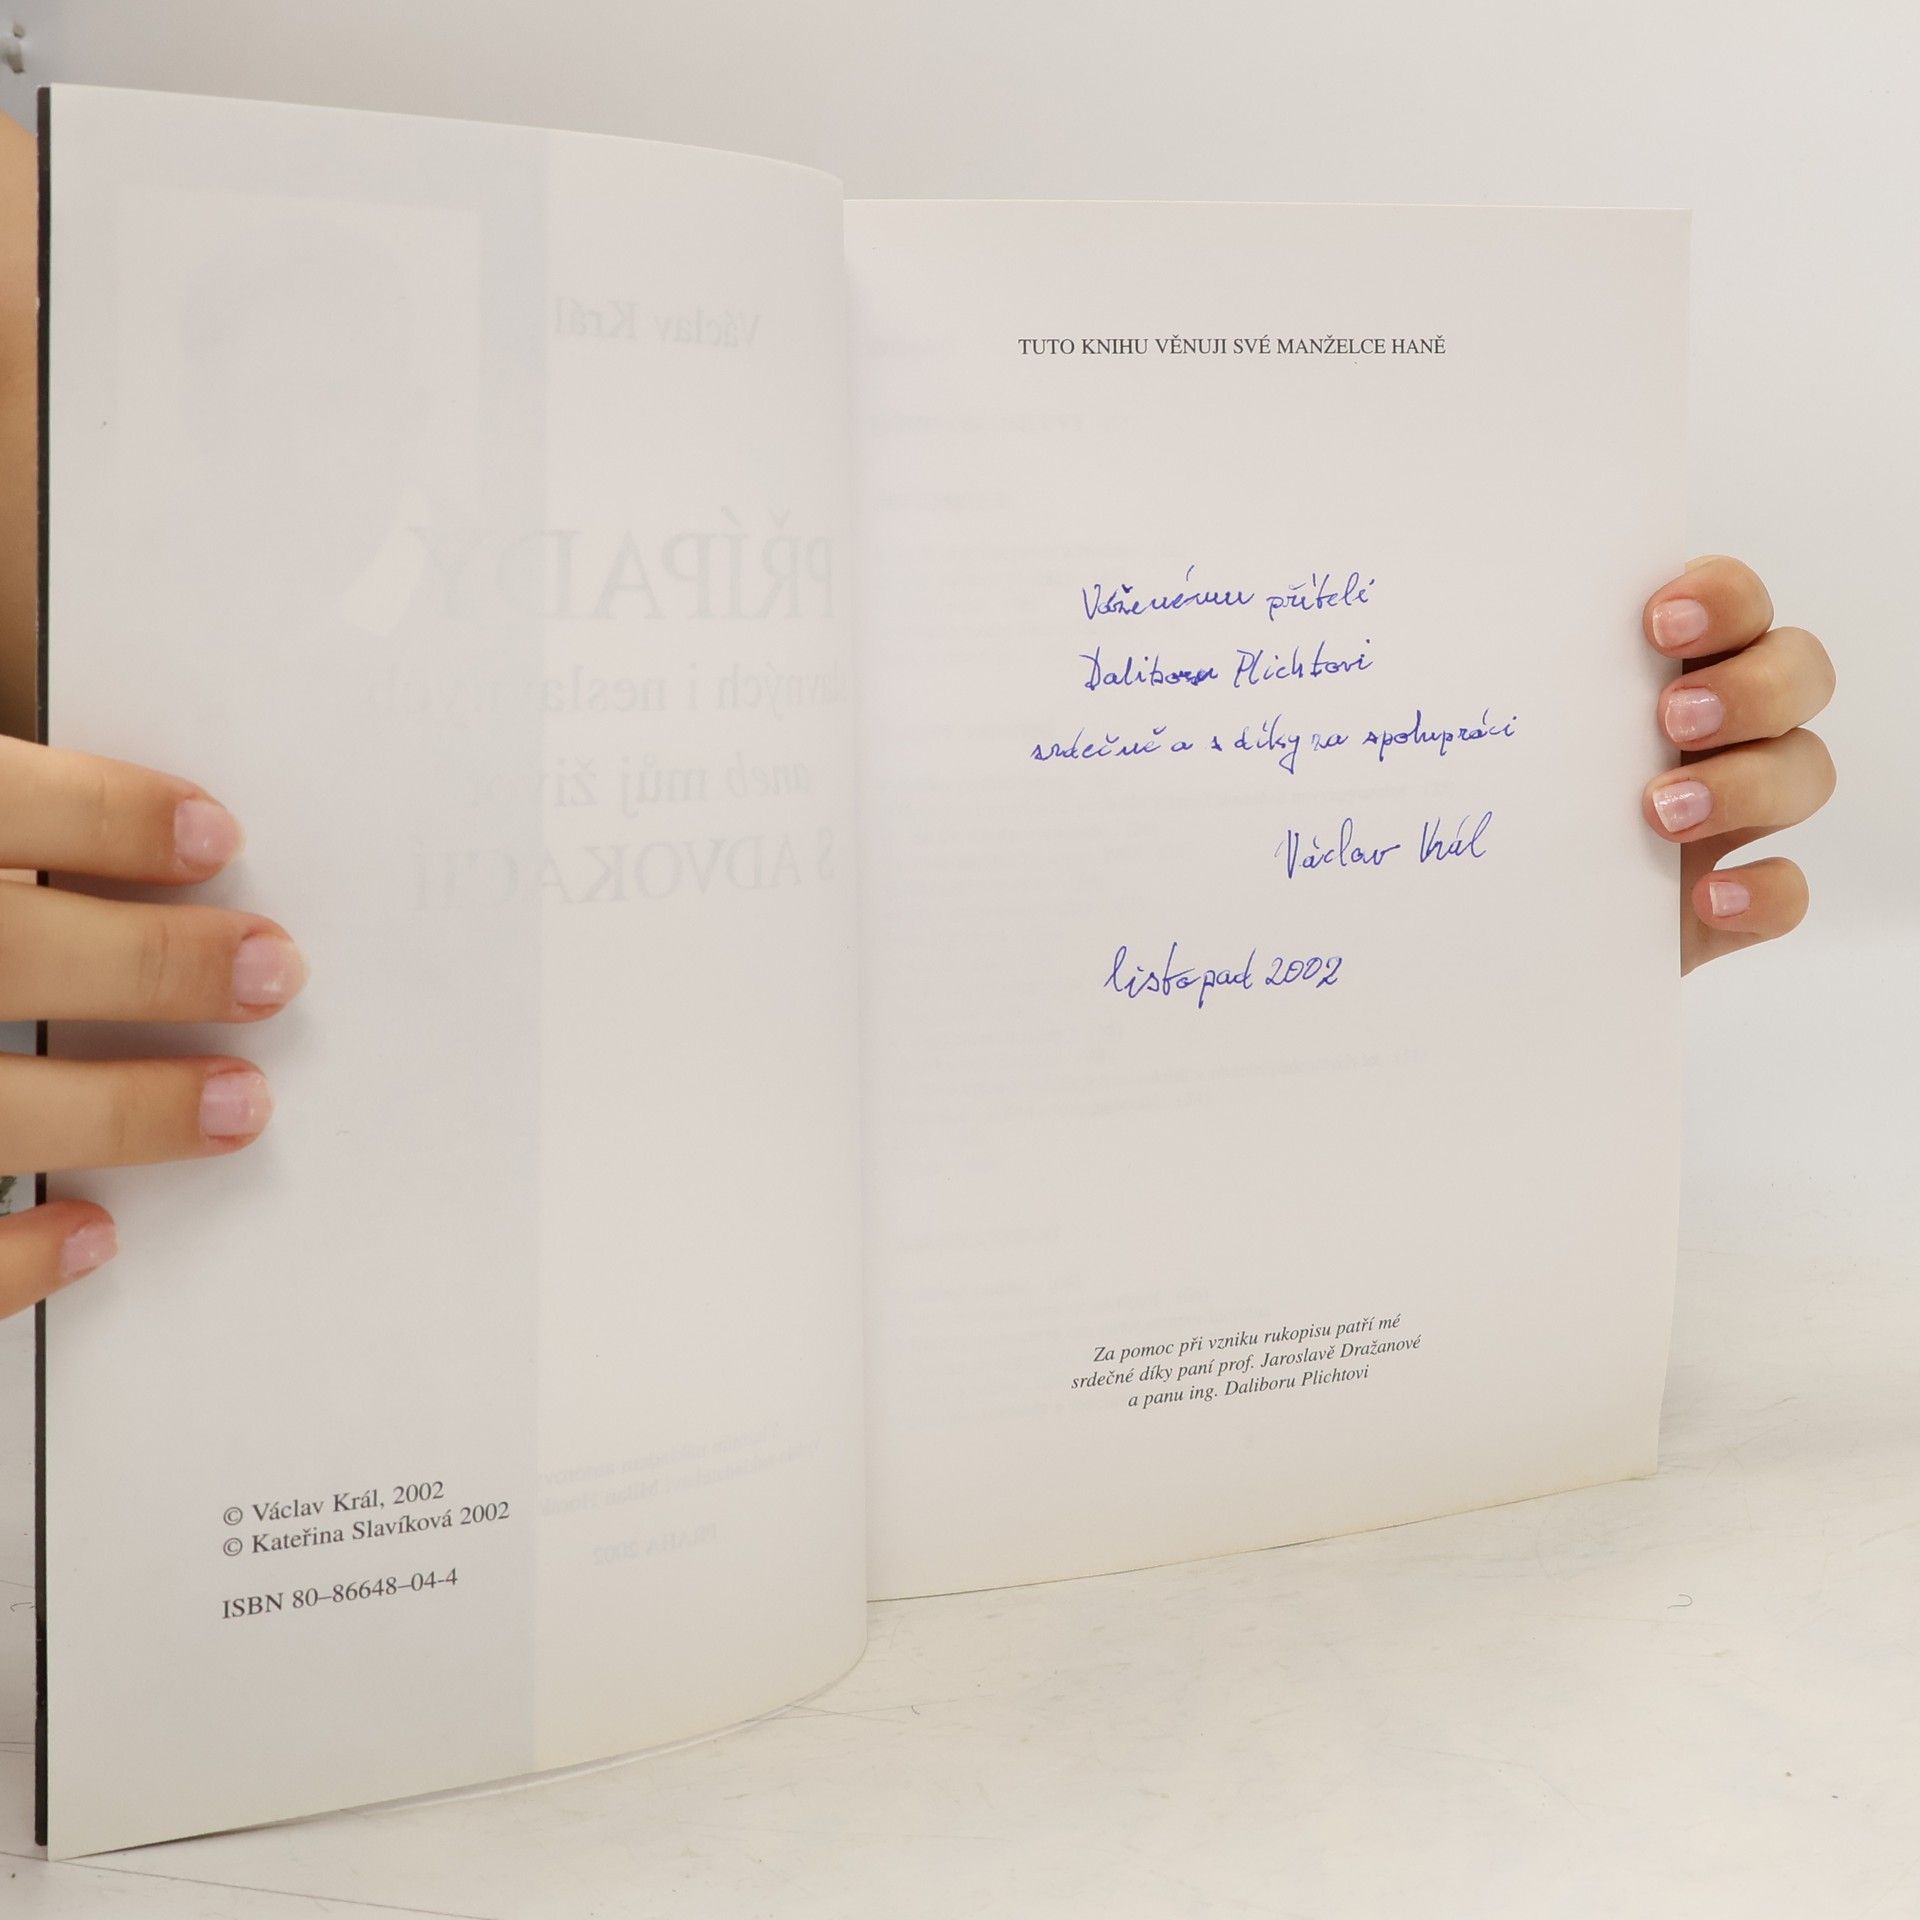 © Václav Král, 2002
© Kateřina Slavíková 2002
ISBN 80–86648–04-4
TUTO KNIHU VĚNUJI SVÉ MANŽELCE HANĚ
Váženému příteli
Daliboru Plichtovi
srdečně a s díky za spolupráci
Václav Král
listopad 2002
Za pomoc při vzniku rukopisu patří mé
srdečné díky paní prof. Jaroslavě Dražanové
a panu ing. Daliboru Plichtovi